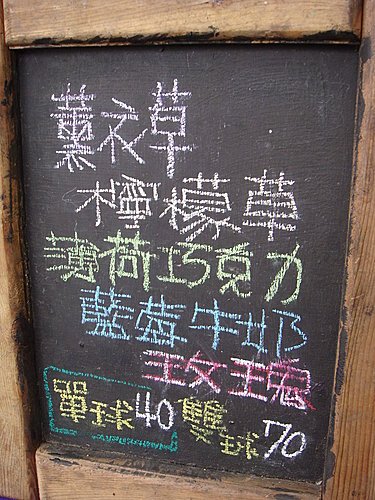 薰衣草
檸檬草
薄荷巧克力
藍莓牛奶
玫瑰
單球40 雙球70